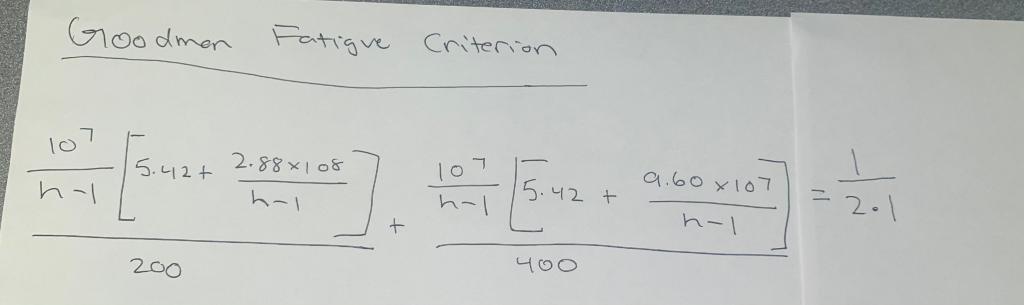 Goodman Fatigue Criterion
10^7/(h-1) [5.42 + (2.88×10^8)/(h-1)] / 200 + 10^7/(h-1) [5.42 + (9.60×10^7)/(h-1)] / 400 = 1/2.1